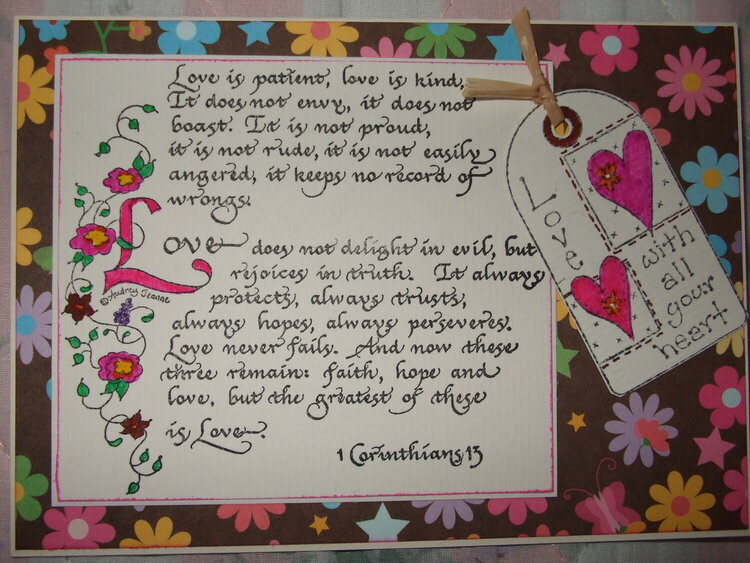 Love is patient, love is kind,
It does not envy, it does not
boast. It is not proud,
it is not rude, it is not easily
angered, it keeps no record of
wrongs.
Love does not delight in evil, but
rejoices in truth. It always
protects, always trusts,
always hopes, always perseveres.
Love never fails. And now these
three remain: faith, hope and
love, but the greatest of these
is Love.
1 Corinthians 13
©Audrey Jeanne
Love
with
all
your
heart